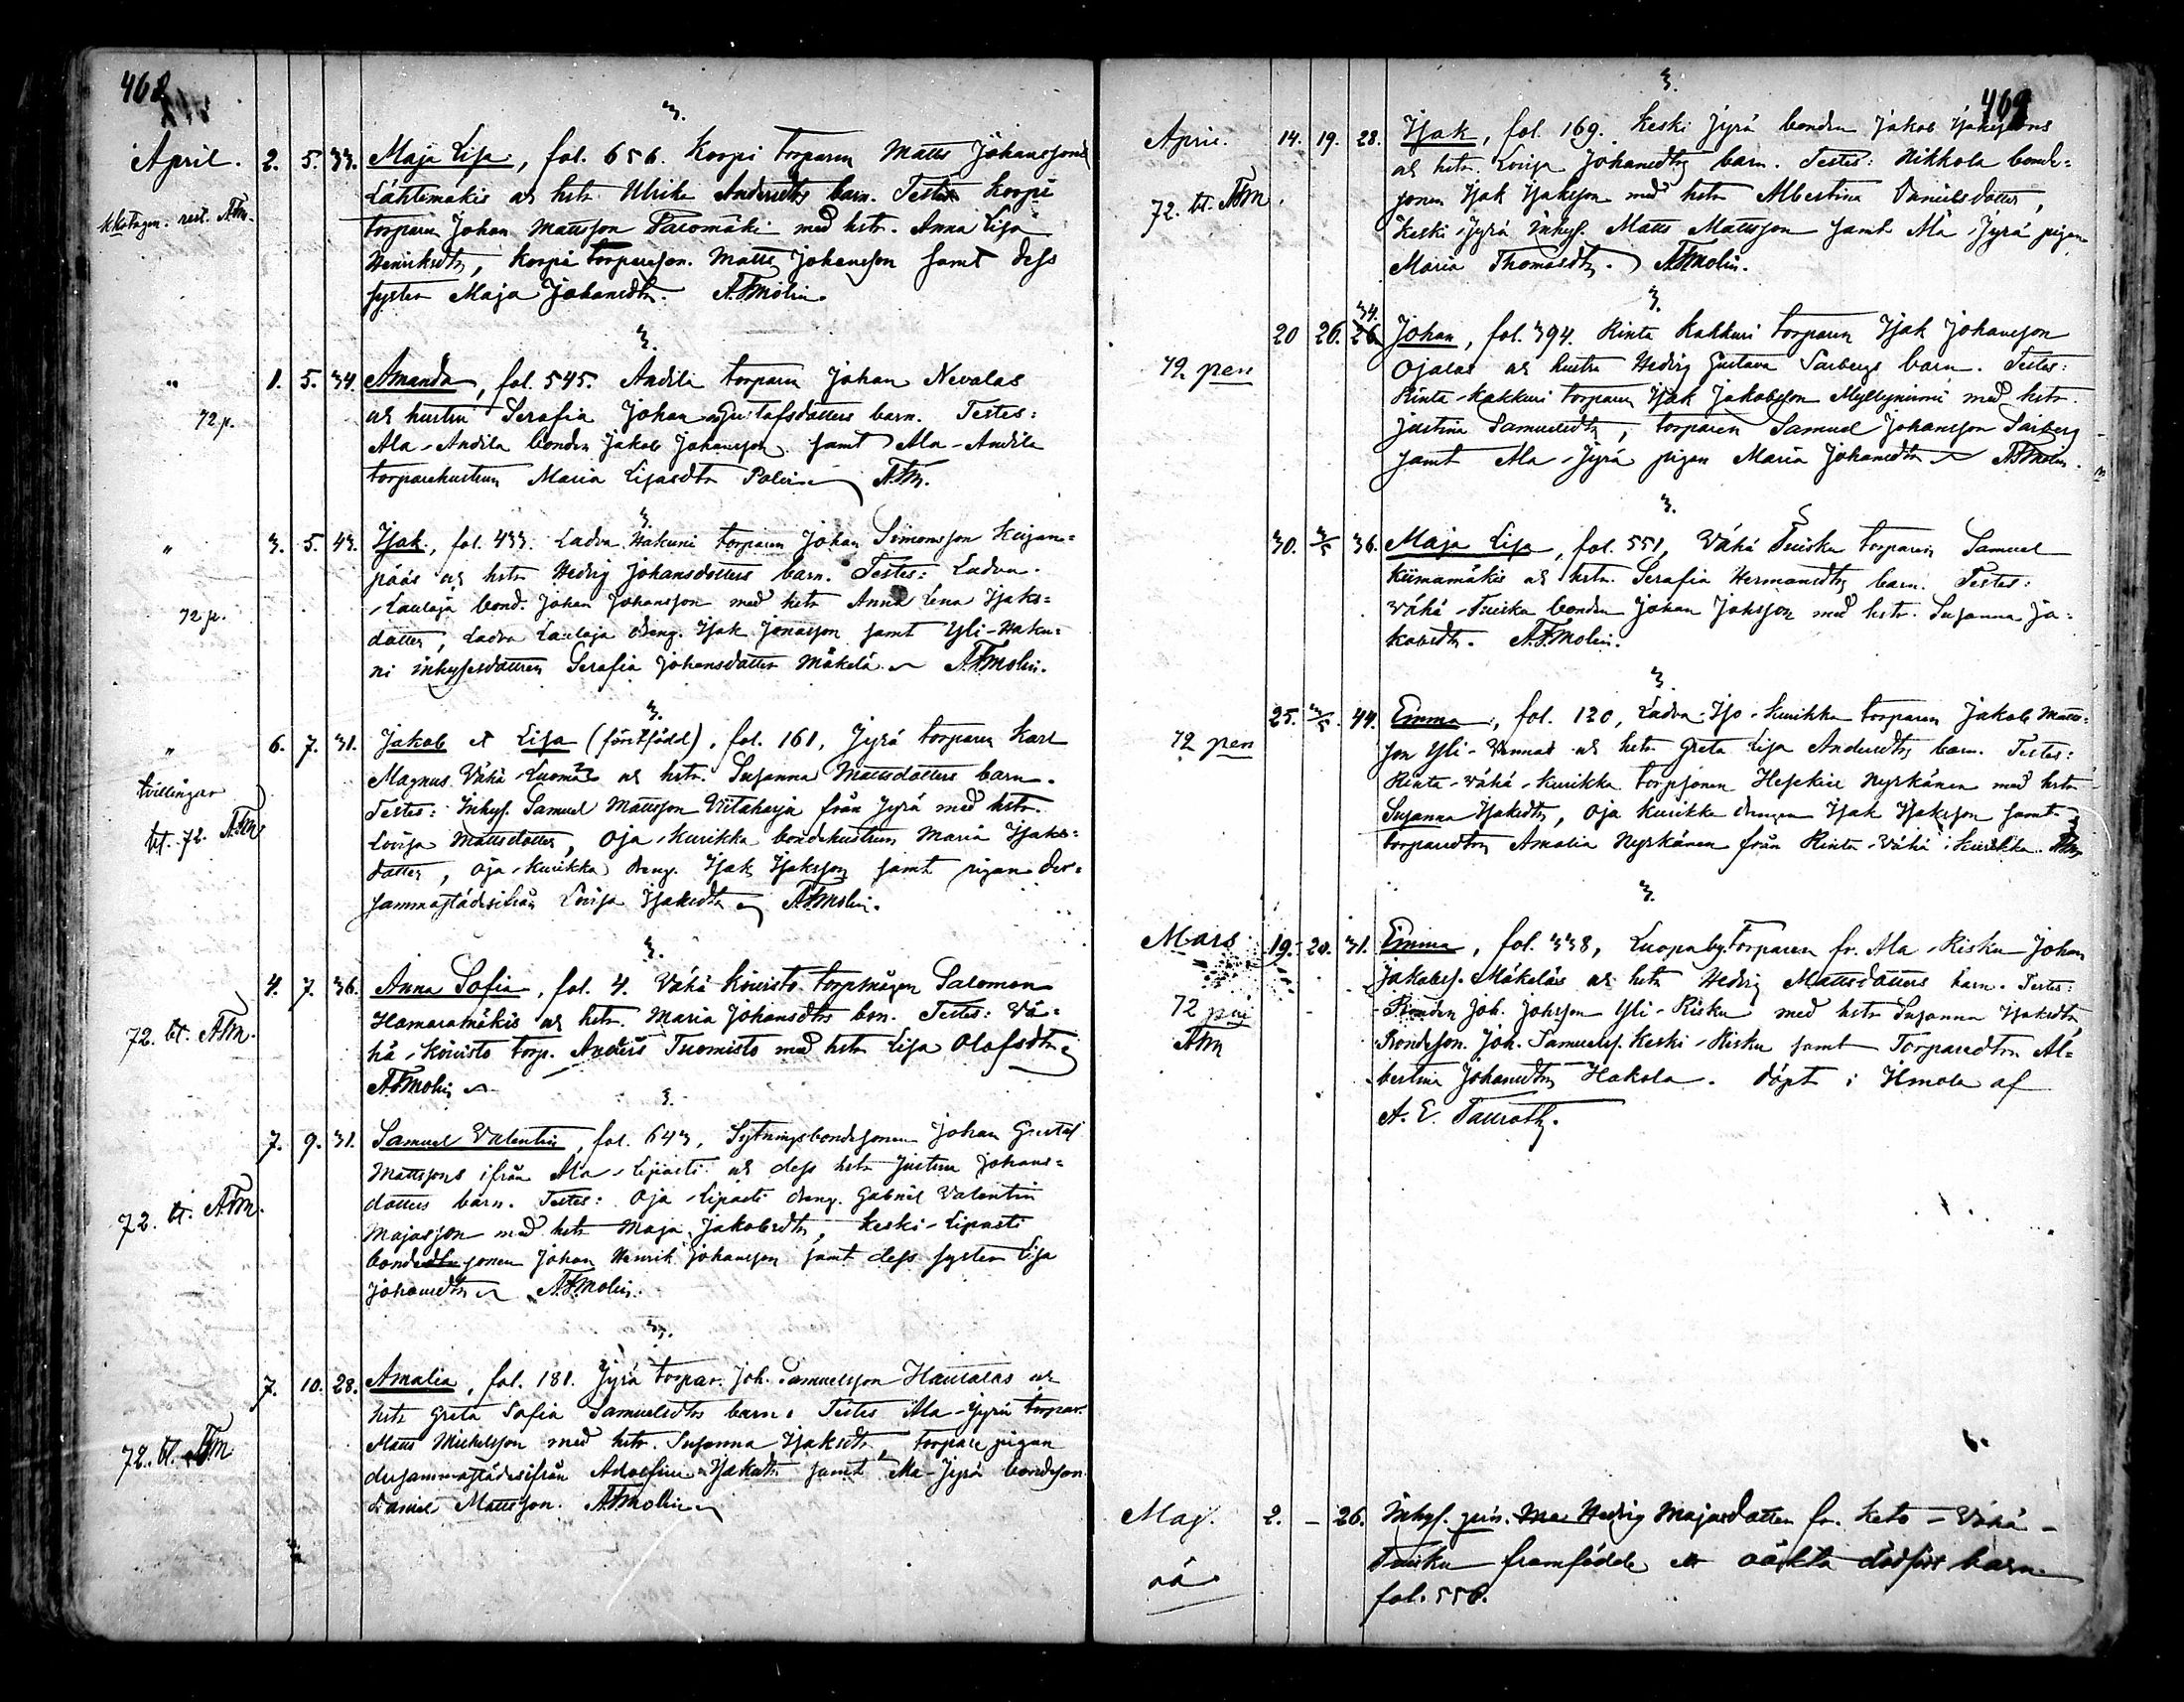 468
April. 2. 5. 33. Maja Lisa, fol. 656. Korpi torparen Matts Johanssons
Lähtemäkis och hstr Ulrika Andersdtrs barn. Testes Korpi
torparen Johan Mattsson Palomäki med hstr. Anna Lisa
Henriksdtr, Korpi torpareson. Matts Johansson samt dess
syster Maja Johansdtr. A.F.Molin.
3.
" 1. 5. 34. Amanda, fol. 545. Andila torparen Johan Nevalas
72 p. och hustru Serafia Johan Gustafsdotters barn. Testes:
Ala-Andila bonden Jakob Johansson samt Ala-Andila
torparehustrun Maria Lisasdtr A.F.M.
3.
" 3. 5. 43. Isak, fol. 433. Ladva Hakuni torparen Johan Simonsson Kujan=
pääs och hstr Hedvig Johansdotters barn. Testes: Ladva-
72 p. -Laulaja bond. Johan Johansson med hstr Anna Lena Isaks=
dotter, Ladva Laulaja dreng. Isak Jonasson samt Yli-Haku=
ni inhysesdottren Serafia Johansdotter Mäkelä A.F.Molin.
3.
" 6. 7. 31. Jakob et Lisa (förstfödd), fol. 161, Jyrä torparen Karl
Magnus Vähä-Luomas och hstr. Susanna Mattsdotters barn.
tvillingar Testes: Inhys. Samuel Mattsson Viitaharja från Jyrä med hstr.
bt. 72. AFM Lovisa Mattsdotter, Oja-Kurikka bondehustrun Maria Isaks=
dotter, Oja-Kurikka dreng. Isak Isaksson samt pigan der=
sammastädesifrån Lovisa Isaksdtr A.F.Molin.
3.
4. 7. 36. Anna Sofia, fol. 4. Vähä Koivisto torpmågen Salomon
Hamaramäkis och hstr. Maria Johansdtrs barn. Testes: Vä=
72. bt. AFM. hä-Koivisto torp. Anders Tuomisto med hstr Lisa Olofsdtr
A.F.Molin
3.
7. 9. 31. Samuel Valentin, fol. 643. Sytningsbondesonen Johan Gustaf
Mattssons ifrån Ala-Lipasti och dess hstr Justina Johans=
dotters barn. Testes: Oja-Lipasti dreng. Gabriel Valentin
72. bt. AFM. Majasson med hstr Maja Jakobsdtr, Keski-Lipasti
bondesonen Johan Henrik Johansson samt dess syster Lisa
Johansdtr A.F.Molin.
3.
7. 10. 28. Amalia, fol. 181. Jyrä torpar. Joh. Samuelsson Hautalas och
hstr Greta Sofia Samuelsdtrs barn. Testes Ala-Jyrä torpar.
72. bt. AFM Matts Michelsson med hstr. Susanna Isaksdtr, torpare pigan
dersammastädesifrån Adolfina Isaksdtr samt Ala-Jyrä bondeson.
Daniel Mattsson. A.F.Molin
469
3.
April. 14. 19. 28. Isak, fol. 169. Keski Jyrä bonden Jakob Isakssons
och hstr. Lovisa Johansdtrs barn. Testes: Nikkola bonde=
72. bt. AFM. sonen Isak Isaksson med hstr Albertina Danielsdotter,
Keski-Jyrä inhys. Matts Mattsson samt Ala-Jyrä pigan
Maria Thomasdtr. A.F.Molin.
3.
20 26. 34. Johan, fol. 394. Rinta Kakkuri torparen Isak Johansson
72 pen Ojalas och hustru Hedvig Gustava Sarbergs barn. Testes:
Rinta-Kakkuri torparen Isak Jakobsson Myllyniemi med hstr.
Justina Samuelsdtr, torparen Samuel Johansson Sarberg
samt Ala-Jyrä pigan Maria Johansdtr A.F.Molin.
3.
30. 3/5 36. Maja Lisa, fol. 551, Vähä Tuisku torparen Samuel
Kiimamäkis och hstr. Serafia Hermansdtrs barn. Testes:
Vähä-Tuisku bonden Johan Johsson med hstr. Susanna Ja=
kobsdtr. A.F.Molin.
3.
25. 3/5. 44. Emma, fol. 120, Ladva-Iso-Kurikka torparen Jakob Matts=
72 pen son Yli-Vennas och hstr Greta Lisa Andersdtrs barn. Testes:
Rinta-Vähä-Kurikka torpsonen Hesekiel Nyrkänen med hstr
Susanna Isaksdtr, Oja Kurikka drengen Isak Isaksson samt
torparedtrn Amalia Nyrkänen från Rinta-Vähä-Kurikka. AFM
3.
Mars 19. 20. 31. Emma, fol. 338, Luopa by. torparen fr. Ala-Risku Johan
Jakobss. Mäkeläs och hstr Hedvig Mattsdotters barn. Testes:
72 pnj Bonden Joh. Johsson Yli-Risku med hstr Susanna Isaksdtr
AFM Bondeson. Joh. Samuelss. Keski-Risku samt Torparedtrn Al=
bertina Johansdtr Hakola. döpt i Ilmola af
A. E. Tauroth.
Maj. 2. - 26. Inhys. pris. Hedvig Majasdotter fr. Keto-Vähä-
oä Tuisku framfödde ett oäkta dödfött barn.
fol. 556.